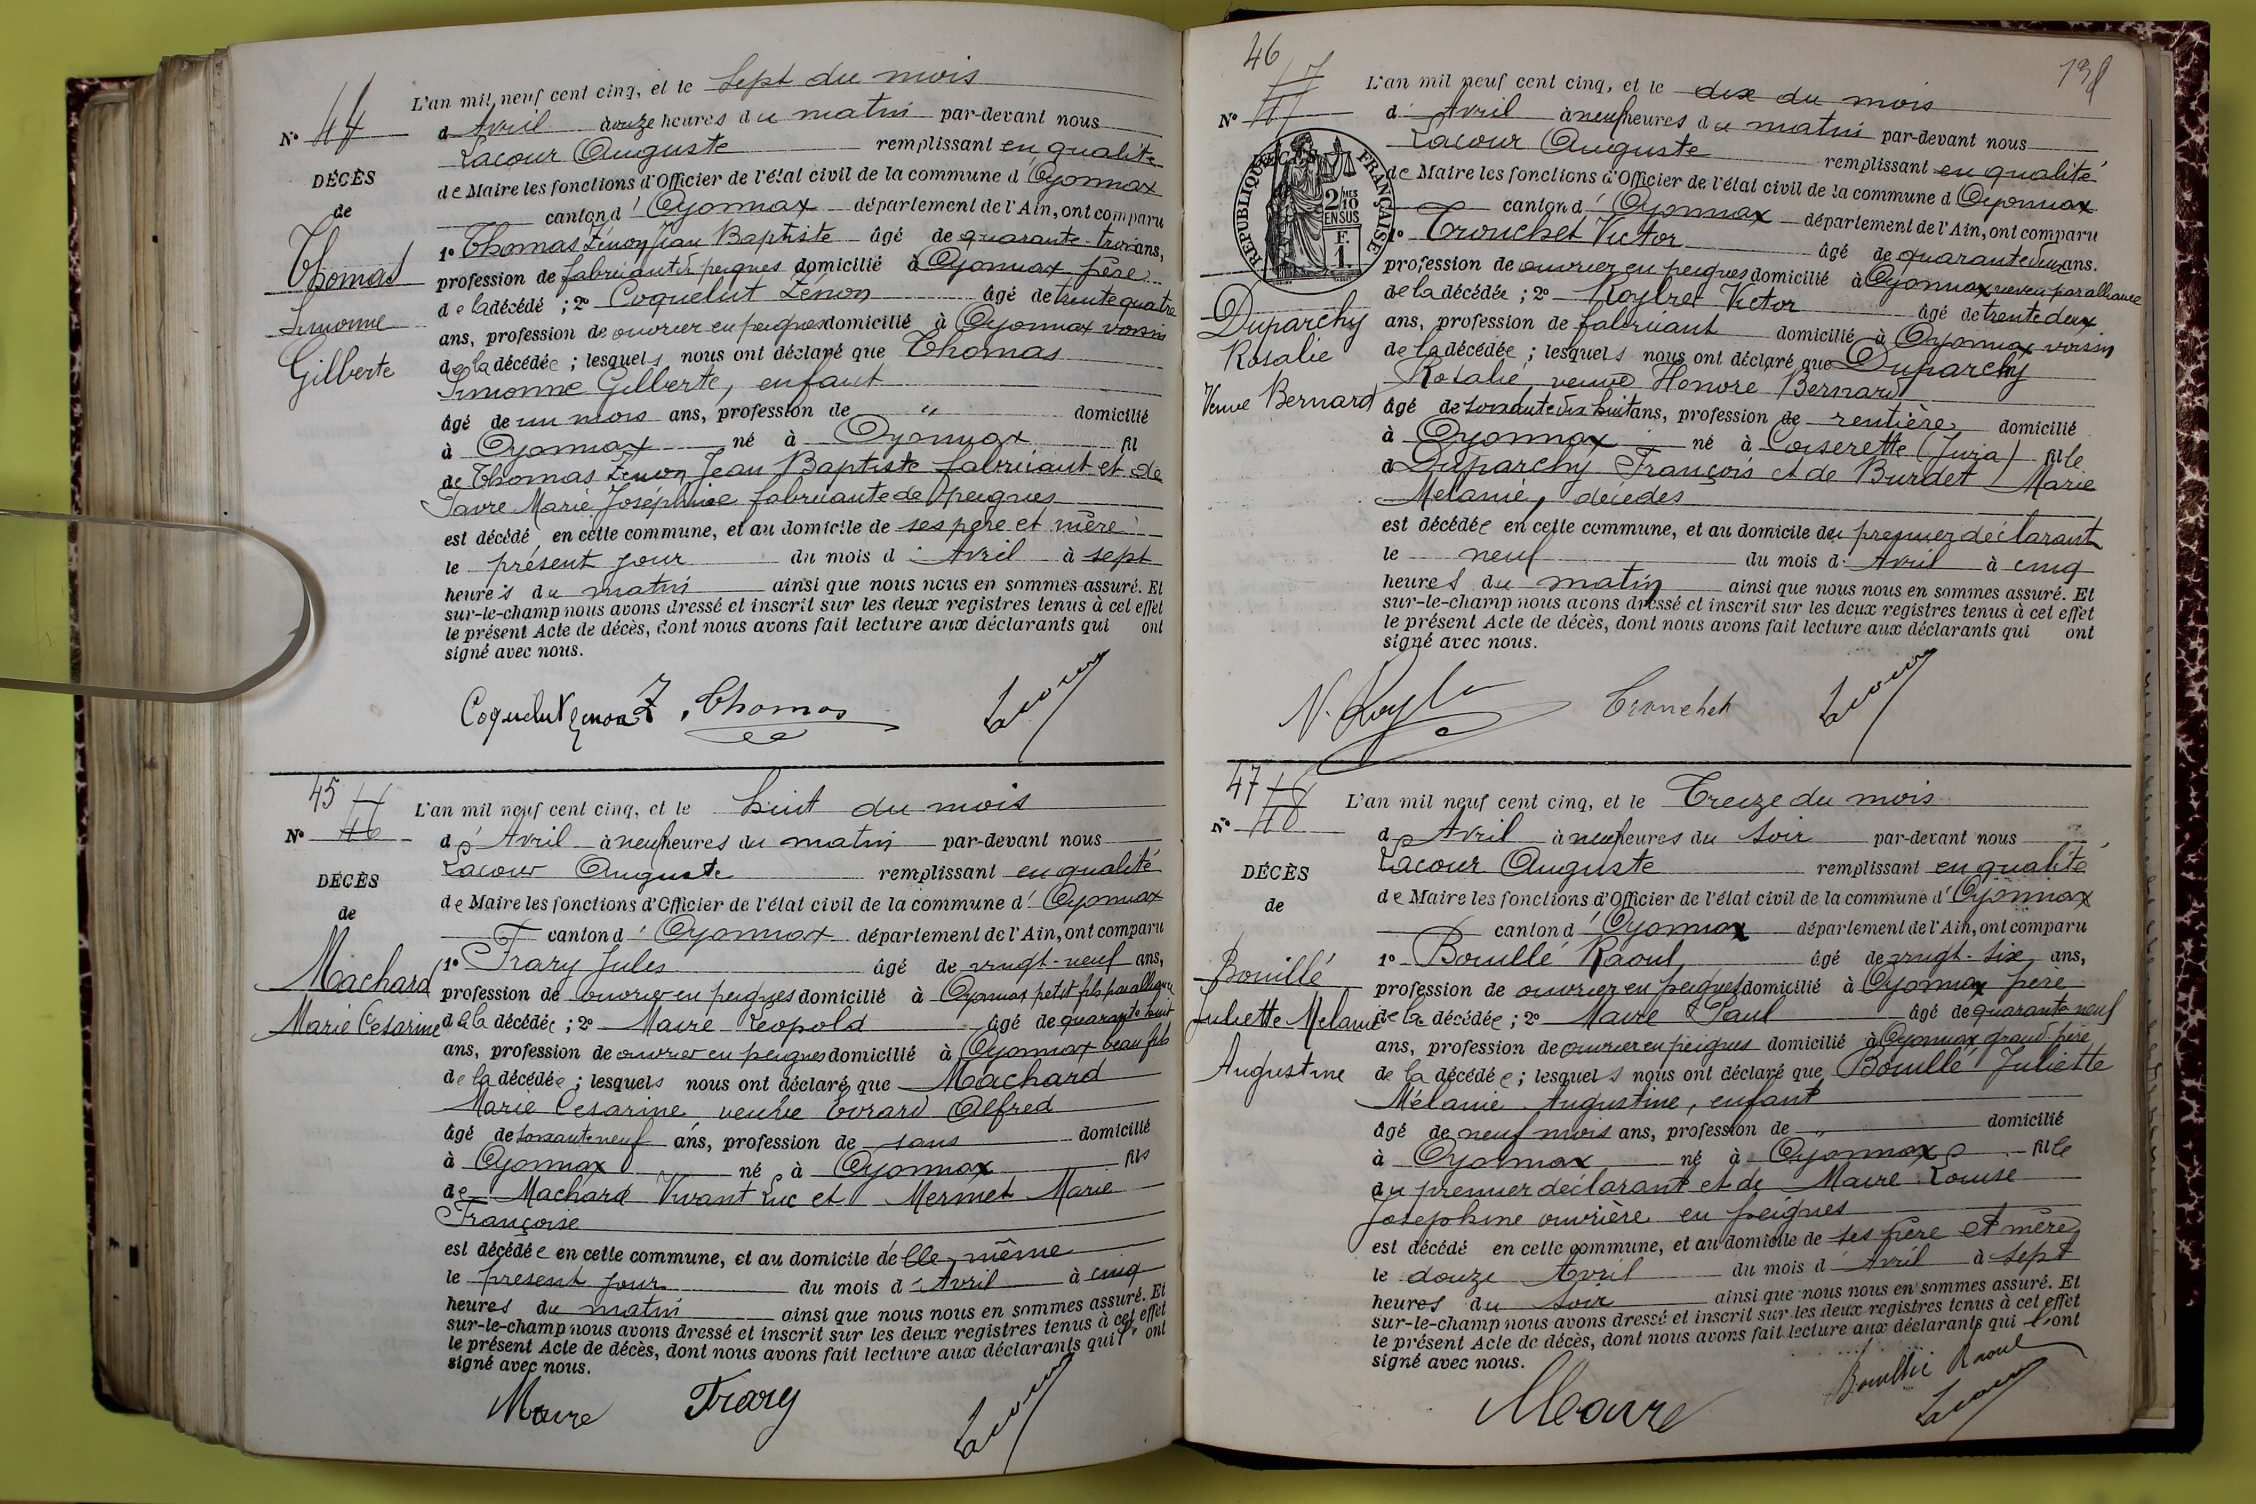 L'an mil neuf cent cinq, et le Sept du mois
N° 44
d Avril à onze heures du matin par-devant nous
Lacour Auguste remplissant en qualité
DÉCÈS
de Maire les fonctions d'Officier de l'état civil de la commune d'Oyonnax
de
canton d'Oyonnax département de l'Ain, ont comparu
Thomas
1° Thomas Zénon Jean Baptiste âgé de quarante-trois ans,
profession de fabricant de peignes domicilié à Oyonnax père
Simonne
de la décédé ; 2° Coquelut Zénon âgé de trente quatre
ans, profession de ouvrier en peignes domicilié à Oyonnax voisin
Gilberte
de la décédée ; lesquels nous ont déclaré que Thomas
Simonne Gilberte, enfant
âgé de un mois ans, profession de " domicilié
à Oyonnax né à Oyonnax fil
de Thomas Zénon Jean Baptiste fabricant et de
Favre Marie Joséphine fabricante de peignes
est décédé en cette commune, et au domicile de ses père et mère
le présent jour du mois d'Avril à sept
heures du matin ainsi que nous nous en sommes assuré. Et
sur-le-champ nous avons dressé et inscrit sur les deux registres tenus à cet effet
le présent Acte de décès, dont nous avons fait lecture aux déclarants qui ont
signé avec nous.
Coquelut Zenon Z. Thomas Lacour
45
46
L'an mil neuf cent cinq, et le huit du mois
N°
d'Avril à neuf heures du matin par-devant nous
Lacour Auguste remplissant en qualité
DÉCÈS
de Maire les fonctions d'Officier de l'état civil de la commune d'Oyonnax
de
canton d'Oyonnax département de l'Ain, ont comparu
Machard
1° Frary Jules âgé de vingt-neuf ans,
profession de ouvrier en peignes domicilié à Oyonnax petit fils par alliance
Marie Césarine
de la décédée ; 2° Maire Léopold âgé de quarante huit
ans, profession de ouvrier en peignes domicilié à Oyonnax beau fils
de la décédée ; lesquels nous ont déclaré que Machard
Marie Césarine veuve Evrard Alfred
âgé de soixante neuf ans, profession de sans domicilié
à Oyonnax né à Oyonnax fils
de Machard Vivant Luc et Mermet Marie
Françoise
est décédée en cette commune, et au domicile d'elle-même
le présent jour du mois d'Avril à cinq
heures du matin ainsi que nous nous en sommes assuré. Et
sur-le-champ nous avons dressé et inscrit sur les deux registres tenus à cet effet
le présent Acte de décès, dont nous avons fait lecture aux déclarants qui l'ont
signé avec nous.
Maire Frary Lacour
46
138
47
L'an mil neuf cent cinq, et le dix du mois
N°
d'Avril à neuf heures du matin par-devant nous
Lacour Auguste remplissant en qualité
RÉPUBLIQUE FRANÇAISE
2/10 EN SUS
F. 1.
de Maire les fonctions d'Officier de l'état civil de la commune d Oyonnax
canton d'Oyonnax département de l'Ain, ont comparu
1° Trouchet Victor âgé de quarante deux ans.
profession de ouvrier en peignes domicilié à Oyonnax neveu par alliance
Duparchy
de la décédée ; 2° Victor âgé de trente deux
ans, profession de fabricant domicilié à Oyonnax voisin
Rosalie
de la décédée ; lesquels nous ont déclaré que Duparchy
Veuve Bernard
Rosalie, veuve Honoré Bernard
âgé de soixante dix huit ans, profession de rentière domicilié
à Oyonnax né à Coiserette (Jura) fille
d Duparchy François et de Burdet Marie
Mélanie, décédés
est décédée en cette commune, et au domicile du premier déclarant
le neuf du mois d'Avril à cinq
heures du matin ainsi que nous nous en sommes assuré. Et
sur-le-champ nous avons dressé et inscrit sur les deux registres tenus à cet effet
le présent Acte de décès, dont nous avons fait lecture aux déclarants qui ont
signé avec nous.
Trouchet Lacour
47
48
L'an mil neuf cent cinq, et le Treize du mois
N°
d Avril à neuf heures du soir par-devant nous
Lacour Auguste remplissant en qualité
DÉCÈS
de Maire les fonctions d'Officier de l'état civil de la commune d'Oyonnax
de
canton d'Oyonnax département de l'Ain, ont comparu
Bouillé
1° Bouillé Raoul âgé de vingt-six ans,
profession de ouvrier en peignes domicilié à Oyonnax père
Juliette Mélanie
de la décédée ; 2° Maire Paul âgé de quarante neuf
ans, profession de ouvrier en peignes domicilié à Oyonnax grand père
Augustine
de la décédée ; lesquels nous ont déclaré que Bouillé Juliette
Mélanie Augustine, enfant
âgé de neuf mois ans, profession de " domicilié
à Oyonnax né à Oyonnax fille
du premier déclarant et de Maire Louise
Joséphine ouvrière en peignes
est décédé en cette commune, et au domicile de ses père et mère
le douze Avril du mois d'Avril à sept
heures du soir ainsi que nous nous en sommes assuré. Et
sur-le-champ nous avons dressé et inscrit sur les deux registres tenus à cet effet
le présent Acte de décès, dont nous avons fait lecture aux déclarants qui l'ont
signé avec nous.
Maire Bouillé Raoul Lacour